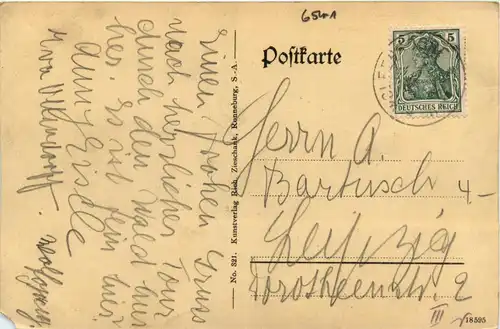 Einen frohen Gruss
nach herrlicher Tour
durch den Wald hier
her. Es ist fein hier!
Anneliese
Wolfgang.
No. 321. Kunstverlag Rich. Zieschank, Ronneburg, S.-A.
6541
Postkarte
5 5
DEUTSCHES REICH
Herrn A.
Bartusch
Leipzig
Dorotheenstr. 2
III
18595